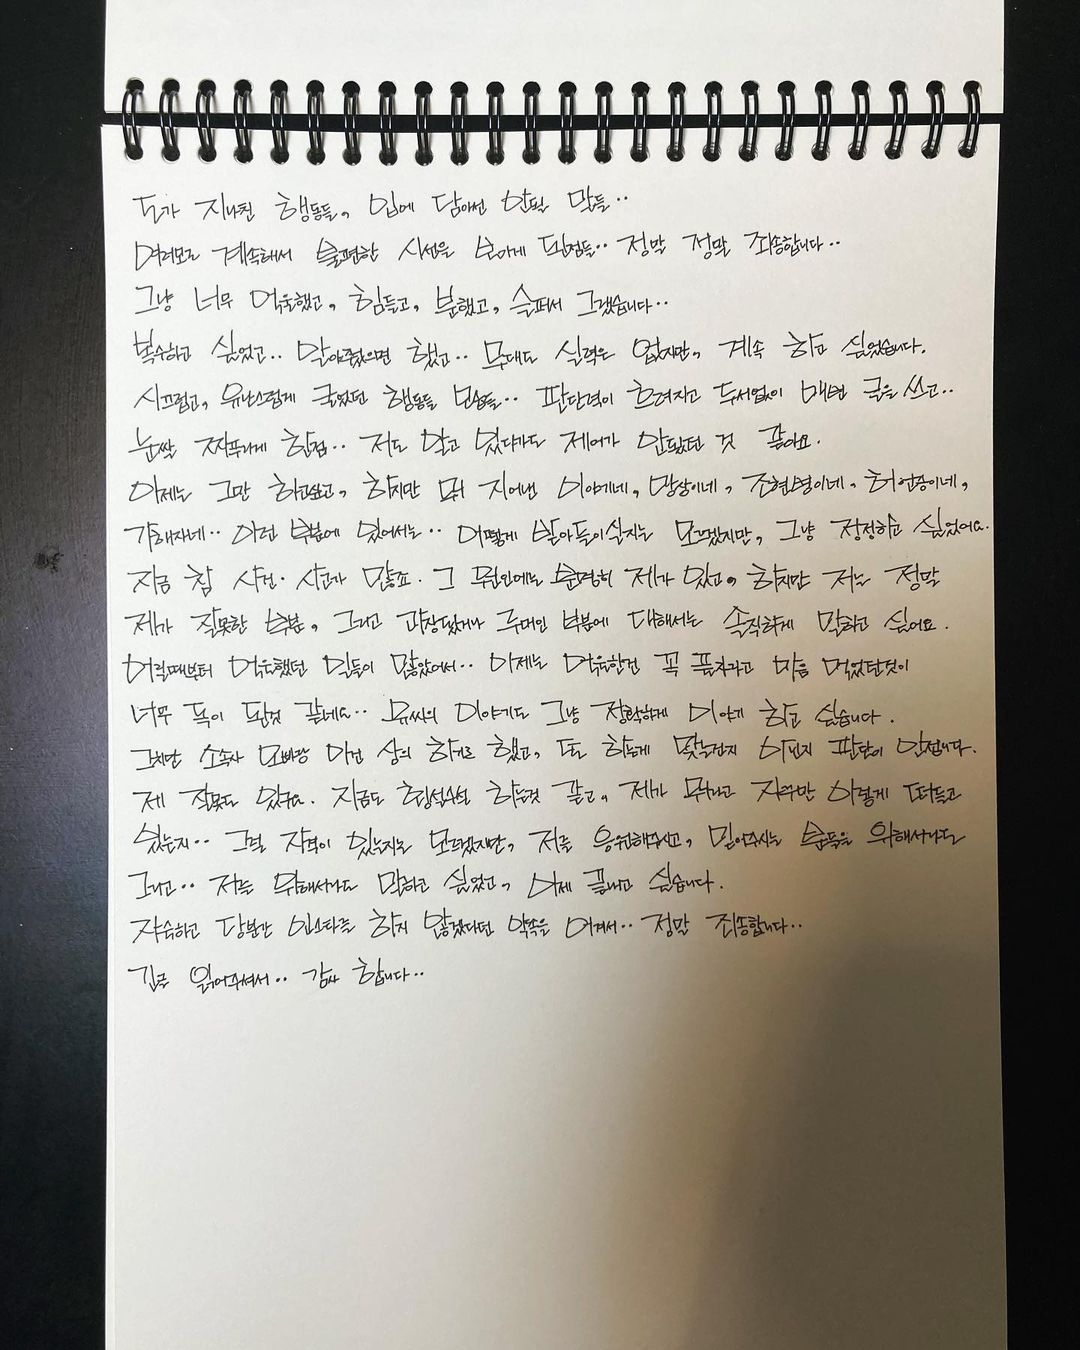 도가 지나친 행동들, 입에 담아선 안될 말들..
여러모로 계속해서 불편한 시선을 보이게 된점들.. 정말 정말 죄송합니다..
그냥 너무 억울했고, 힘들고, 분했고, 슬퍼서 그랬습니다..
복수하고 싶었고.. 알아주었으면 했고.. 무대도 실력은 없지만, 계속 하고 싶었습니다.
시끄럽고, 유난스럽게 굴었던 행동들 모습들.. 판단력이 흐려지고 두서없이 매번 글을 쓰고..
눈쌀 찌푸리게 한점.. 저도 알고 있다가도 제어가 안됐던 것 같아요.
이제는 그만 하고싶고, 하지만 뭐 지어낸 이야기네, 망상이네, 조현병이네, 허언증이네,
가해자네.. 이런 부분에 있어서는.. 어떻게 받아들이실지는 모르겠지만, 그냥 정정하고 싶었어요.
지금 참 사건·사고가 많죠. 그 원인에는 분명히 제가 있고, 하지만 저는 정말
제가 잘못한 부분, 그리고 과장됐거나 루머인 부분에 대해서는 솔직하게 말하고 싶어요.
어릴때부터 억울했던 일들이 많았어서.. 이제는 억울한건 꼭 풀자라고 마음 먹었던것이
너무 독이 된것 같네요.. 유씨의 이야기도 그냥 정확하게 이야기 하고 싶습니다.
그치만 소속사 모빠랑 이건 상의 하기로 했고, 또 하는게 맞는건지 아닌지 판단이 안섭니다.
제 잘못도 있구요. 지금도 횡설수설 하는것 같고, 제가 뭐라고 자꾸만 이렇게 떠들고
있는지.. 그럴 자격이 있는지는 모르겠지만, 저를 응원해주시고, 믿어주시는 분들을 위해서라도
그리고.. 저를 위해서라도 말하고 싶었고, 이제 끝내고 싶습니다.
자숙하고 당분간 인스타를 하지 않겠다던 약속을 어겨서.. 정말 죄송합니다..
긴글 읽어주셔서.. 감사 합니다..